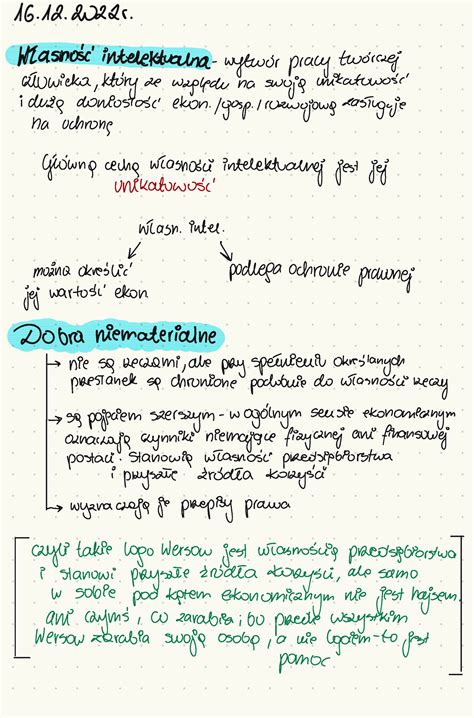 16.12.2022r.
Własność intelektualna - wytwór pracy twórczej
człowieka, który ze względu na swoją unikatowość
i dużą doniosłość ekon./gosp./rozwojową zasługuje
na ochronę
Główną cechą własności intelektualnej jest jej
unikatowość
własn. intel.
można określić
jej wartość ekon
podlega ochronie prawnej
Dobra niematerialne
→ nie są rzeczami, ale przy spełnieniu określonych
przesłanek są chronione podobnie do własności rzeczy
→ są pojęciem szerszym - w ogólnym sensie ekonomicznym
oznaczają czynniki niemające fizycznej ani finansowej
postaci. Stanowią własność przedsiębiorstwa
i przyszłe źródła korzyści
→ wyznaczają je przepisy prawa
czyli takie logo Wersow jest własnością przedsiębiorstwa
i stanowi przyszłe źródła korzyści, ale samo
w sobie pod kątem ekonomicznym nie jest hajsem
ani czymś, co zarabia, bo przede wszystkim
Wersow zarabia swoją osobą, a nie logiem - to jest
pomoc